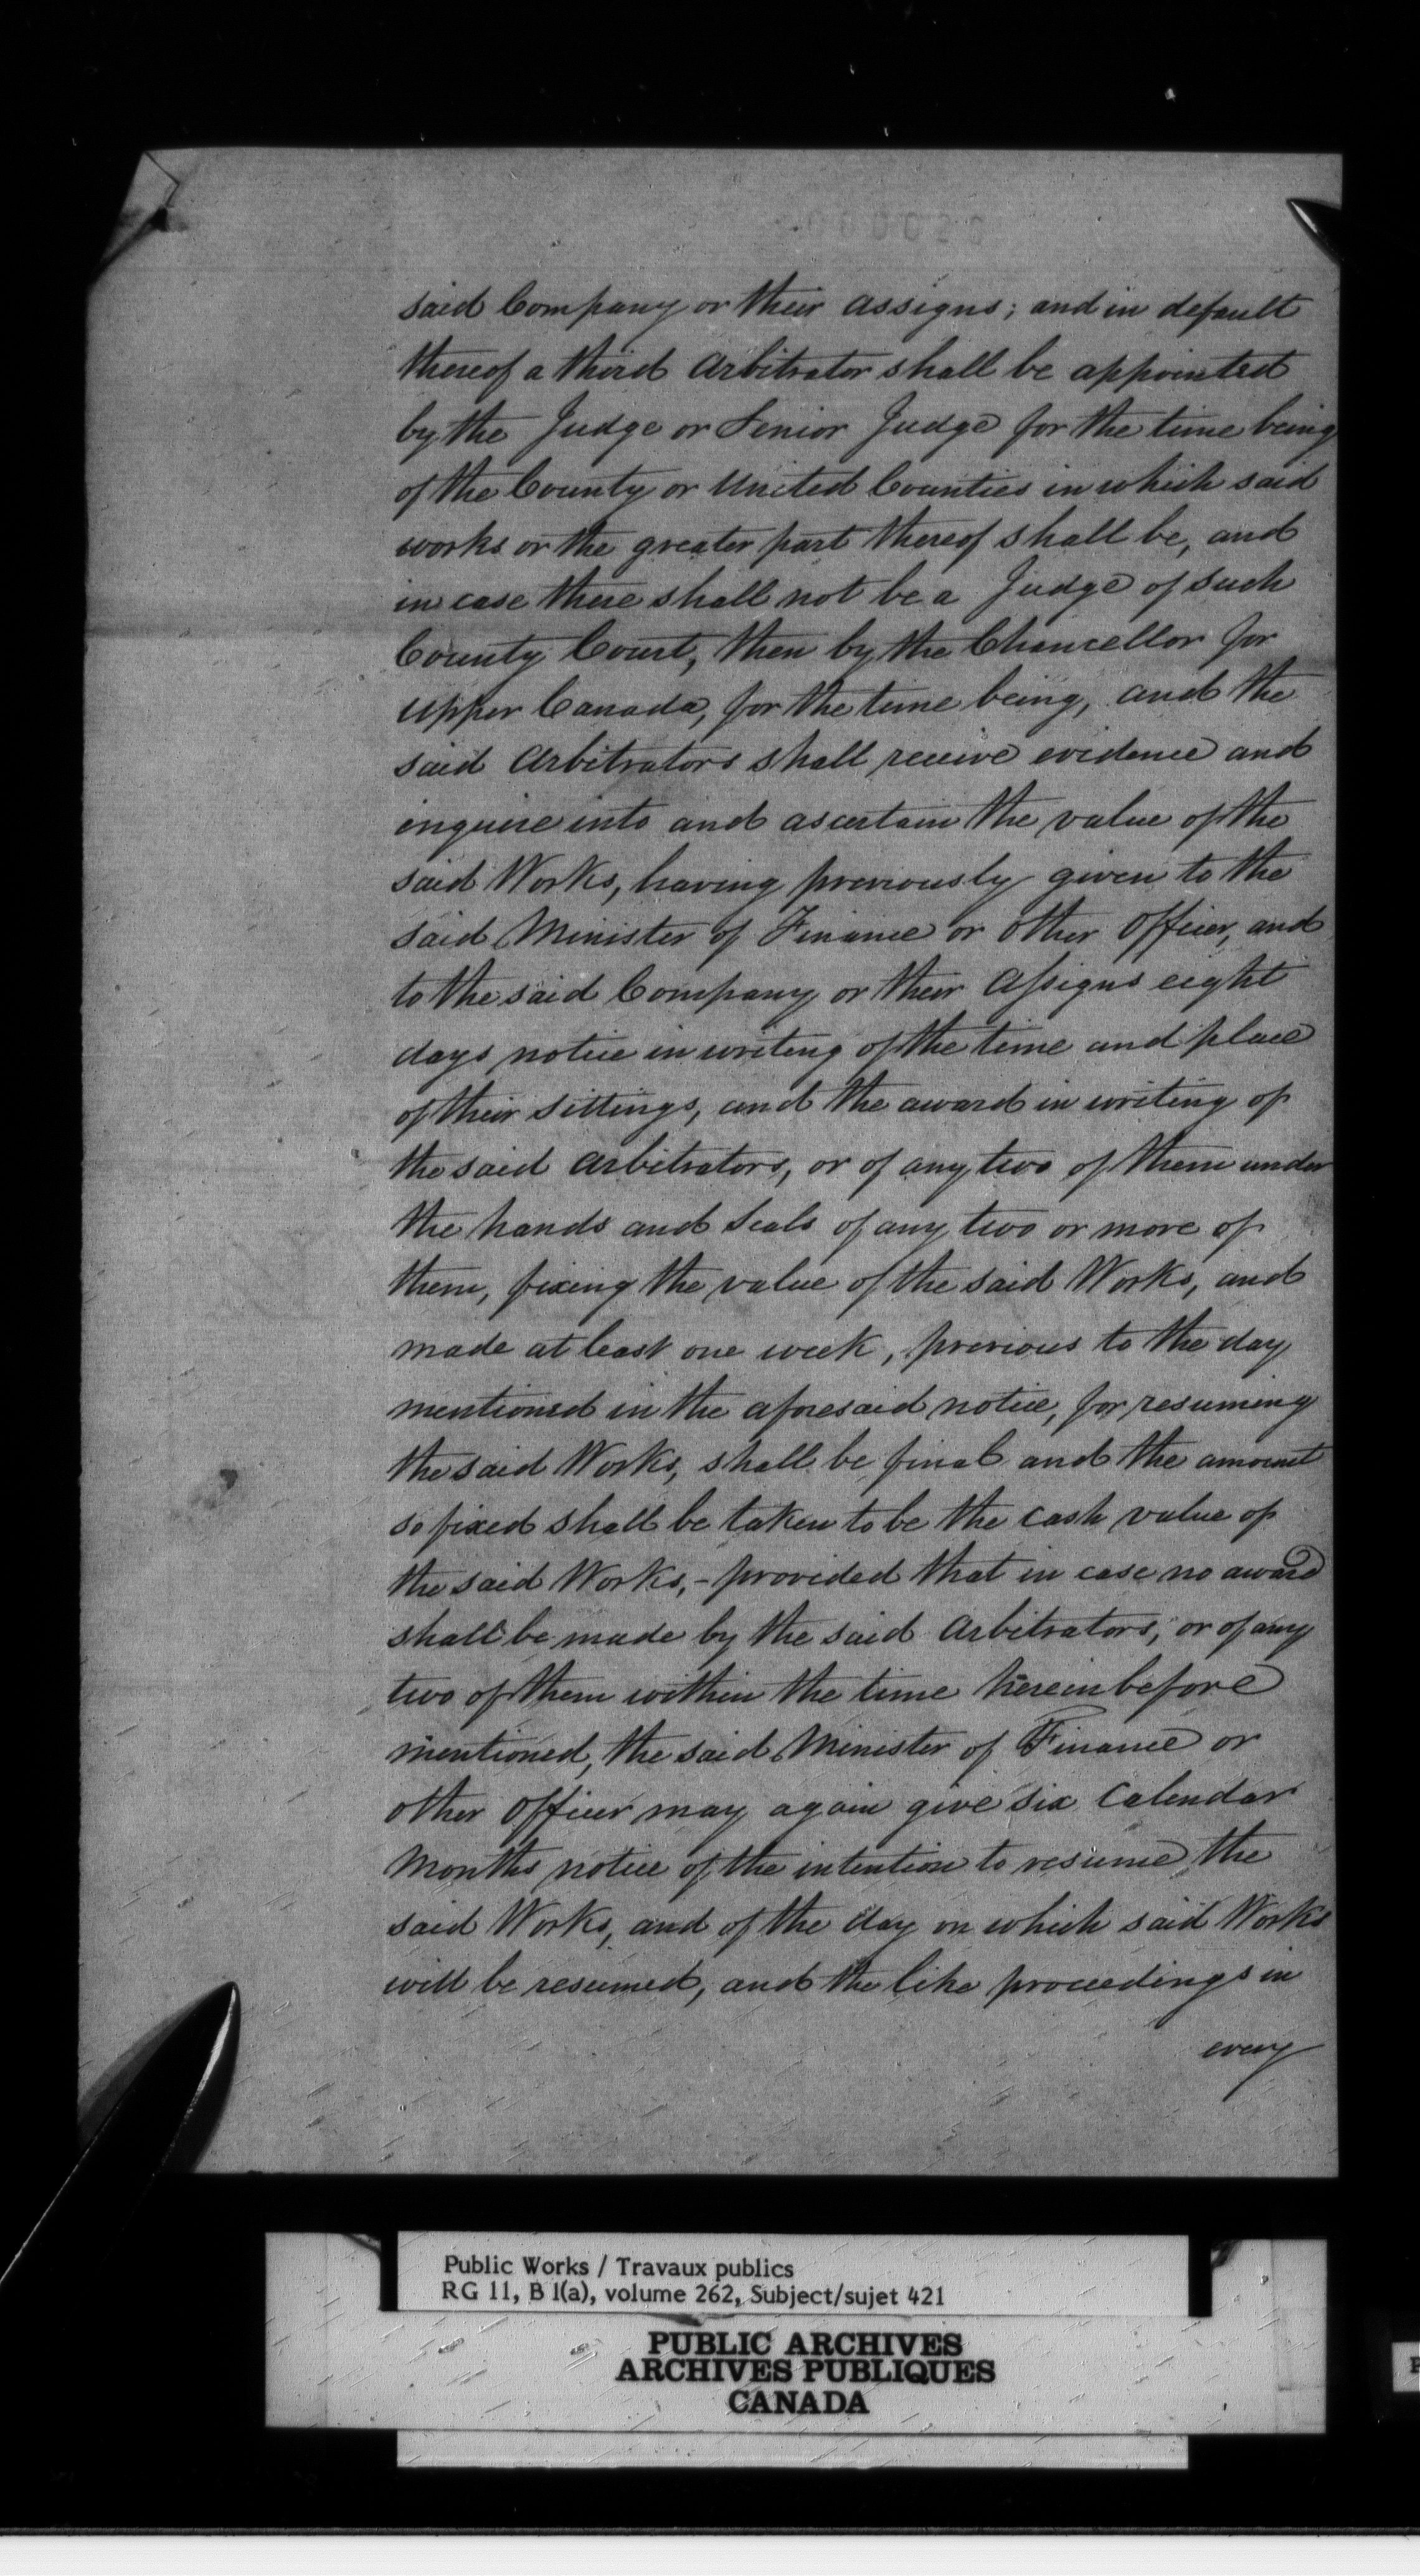 said Company or their assigns; and in default
thereof a third Arbitrator shall be appointed
by the Judge or Senior Judge for the time being
of the County or United Counties in which said
works or the greater part thereof shall be, and
in case there shall not be a Judge of such
County Court, then by the Chancellor for
Upper Canada, for the time being, and the
said Arbitrators shall receive evidence and
inquire into and ascertain the value of the
said Works, having previously given to the
said Minister of Finance or other Officer, and
to the said Company or their Assigns eight
days notice in writing of the time and place
of their sittings, and the award in writing of
the said Arbitrators, or of any two of them under
the hands and Seals of any two or more of
them, fixing the value of the said Works, and
made at least one week, previous to the day
mentioned in the aforesaid notice, for resuming
the said Works, shall be final and the amount
so fixed shall be taken to be the cash value of
the said Works,- provided that in case no award
shall be made by the said Arbitrators, or of any
two of them within the time hereinbefore
mentioned, the said Minister of Finance or
other Officer may again give six Calendar
Months notice of the intention to resume the
said Works, and of the day on which said Works
will be resumed, and the like proceedings in
every
Public Works / Travaux publics
RG 11, B 1(a), volume 262, Subject/sujet 421
PUBLIC ARCHIVES
ARCHIVES PUBLIQUES
CANADA